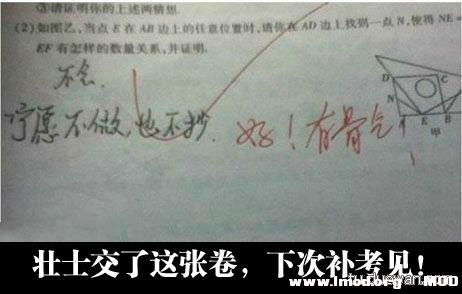 ③请证明你的上述两猜想.
(2)如图乙,当点 E 在 AB 边上的任意位置时,请你在 AD 边上找到一点 N,使得 NE=
EF 有怎样的数量关系,并证明.
不会.
宁愿不做,也不抄.
好!有骨气!
D C
N
A E B
甲
壮士交了这张卷,下次补考见!